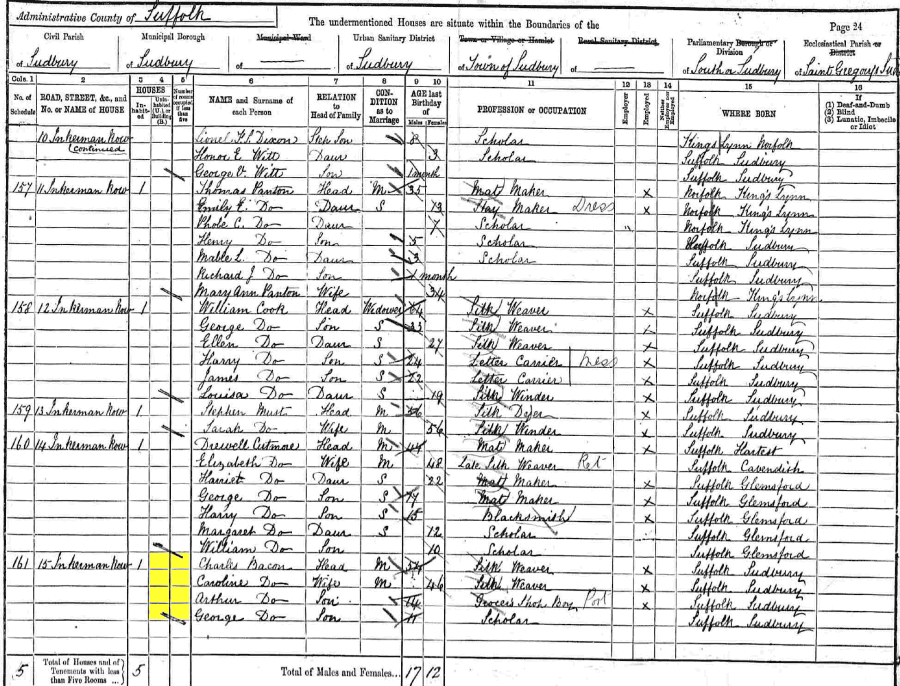 Administrative County of Suffolk
The undermentioned Houses are situate within the Boundaries of the
Page 24
Civil Parish
of Sudbury
Municipal Borough
of Sudbury
Municipal Ward
of —
Urban Sanitary District
of Sudbury
Town or Village or Hamlet
of Town of Sudbury
Rural Sanitary District
of —
Parliamentary Borough or Division
of South or Sudbury
Ecclesiastical Parish or District
of Saint Gregory's
Cols. 1 2 3 4 5 6 7 8 9 10 11 12 13 14 15 16
No. of Schedule
ROAD, STREET, &c., and No. or NAME of HOUSE
HOUSES
Inhabited
Uninhabited (U.), or Building (B.)
Number of rooms occupied if less than five
NAME and Surname of each Person
RELATION to Head of Family
CONDITION as to Marriage
AGE last Birthday of
Males Females
PROFESSION or OCCUPATION
Employer
Employed
Neither Employer nor Employed
WHERE BORN
If
(1) Deaf-and-Dumb
(2) Blind
(3) Lunatic, Imbecile or Idiot
10 Inkerman Row (continued) Lionel Dixon Step Son 8 Scholar Kings Lynn Norfolk
Honor E Witt Daur 3 Scholar Suffolk Sudbury
George V Witt Son 1 month Suffolk Sudbury
157 11 Inkerman Row 1 Thomas Panton Head M 35 Mat Maker X Norfolk King's Lynn
Emily E Do Daur S 13 Maker Dress X Norfolk King's Lynn
Phobe C. Do Daur 7 Scholar " Norfolk King's Lynn
Henry Do Son 5 Scholar Suffolk Sudbury
Mable L. Do Daur 3 Scholar Suffolk Sudbury
Richard J Do Son month Suffolk Sudbury
Mary Ann Panton Wife 34 Norfolk King's Lynn
158 12 Inkerman Row 1 William Cook Head Widower 64 Silk Weaver X Suffolk Sudbury
George Do Son S 33 Silk Weaver X Suffolk Sudbury
Ellen Do Daur S 27 Silk Weaver X Suffolk Sudbury
Harry Do Son S 24 Letter Carrier Mess X Suffolk Sudbury
James Do Son S 22 Letter Carrier X Suffolk Sudbury
Louisa Do Daur S 19 Silk Winder X Suffolk Sudbury
159 13 Inkerman Row 1 Stephen Must Head M 56 Silk Dyer X Suffolk Sudbury
Sarah Do Wife M 56 Silk Winder X Suffolk Sudbury
160 14 Inkerman Row 1 Drewell Cutmore Head M 44 Mat Maker X Suffolk Hartest
Elizabeth Do Wife M 48 Late Silk Weaver Ret Suffolk Cavendish
Harriet Do Daur S 22 Mat Maker X Suffolk Glemsford
George Do Son S Mat Maker X Suffolk Glemsford
Harry Do Son S 15 Blacksmith X Suffolk Glemsford
Margaret Do Daur S 12 Scholar Suffolk Glemsford
William Do Son 10 Scholar Suffolk Glemsford
161 15 Inkerman Row 1 Charles Bacon Head M 54 Silk Weaver X Suffolk Sudbury
Caroline Do Wife M 46 Silk Weaver X Suffolk Sudbury
Arthur Do Son 14 Grocers Shop Boy Port X Suffolk Sudbury
George Do Son 11 Scholar Suffolk Sudbury
5 Total of Houses and of Tenements with less than Five Rooms 5 Total of Males and Females... 17 12